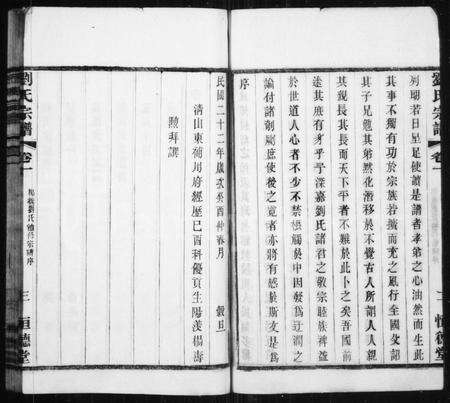 劉氏宗譜
卷一
二
恒德堂
列明若日星足使讀是譜者孝弟之心油然而生此
其事不獨有功於宗族若擴而充之風行全國父詔
其子兄勉其弟默化潛移於不覺古人所謂人人親
其親長其長而天下平者不難於此卜之矣吾國前
途其庶有豸乎予深嘉劉氏諸君之敬宗睦族裨益
於世道人心者不少不禁觸於中因數為迂濶之
論付諸剞劂庶使後之覽者亦將有感於斯文是為
序
民國二十二年歲次癸酉仲春月 穀旦
清山東補用府經歷己酉科優貢生陽羨楊壽
熙拜譔
劉氏宗譜
卷一
楊敘劉氏續修宗譜序
三
恒德堂